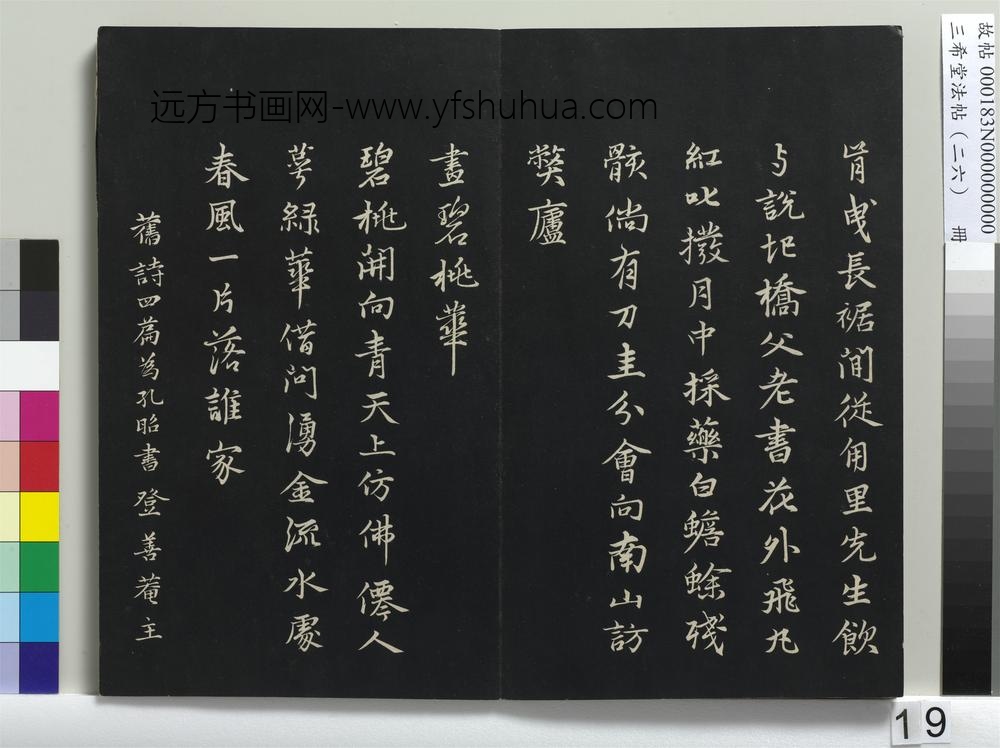 肯曳長裾閒從甪里先生飲
与說圯橋父老書花外飛丸
紅叱撥月中採藥白蟾蜍殘
骸倘有刀圭分會向南山訪
獘廬
畫碧桃華
碧桃開向青天上仿佛僊人
萼綠華借问湧金流水處
春風一片落誰家
舊詩四篇為孔昭書 登善菴主
远方书画网-www.yfshuhua.com
故帖000183N000000000
三希堂法帖(二六) 冊
19